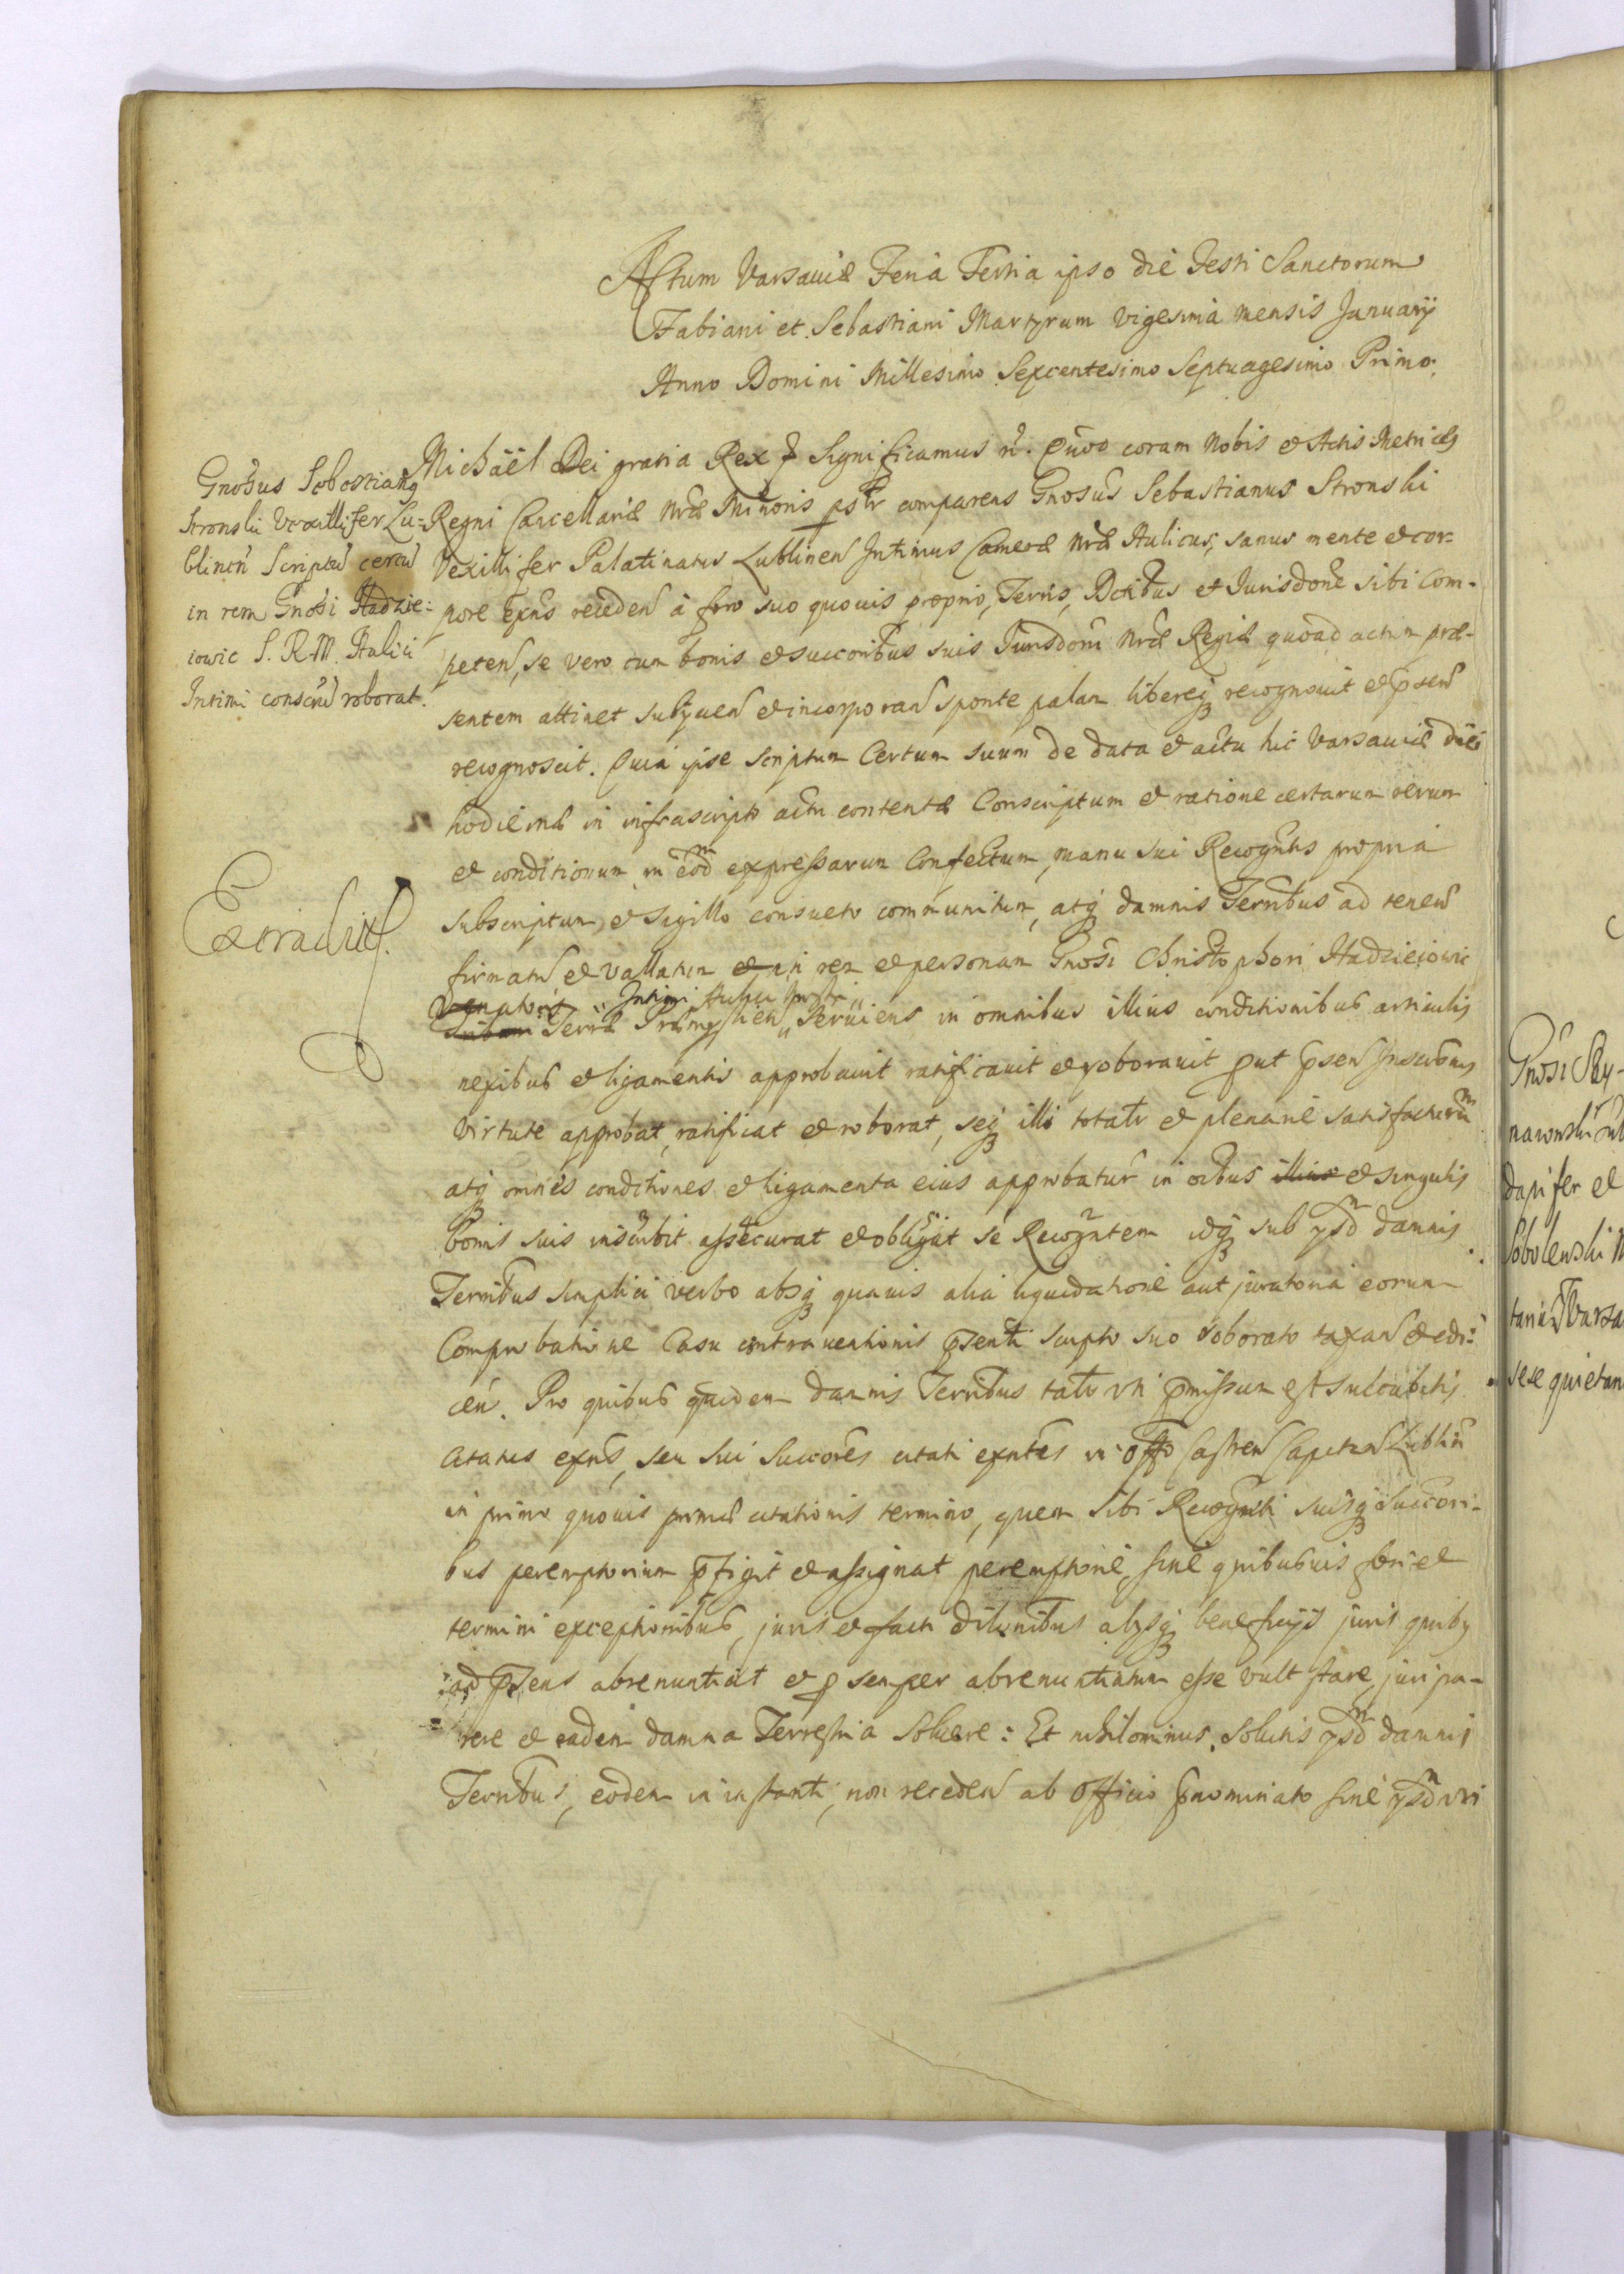 Actum Varsaviæ Feria Tertia ipso die Festi Sanctorum
Fabiani et Sebastiani Martyrum vigesima mensis Januarij
Anno Domini Millesimo Sexcentesimo Septuagesimo Primo.
Gnosus Sebastiang
Stronski Vexillifer Lu=
blinen Scriptu certu
in rem Gnosi Hadzie=
iowic S. R. M. Aulici
Intimi conscru roborat.
Extraditt.
Michäel Dei gratia Rex Significamus n. Quod coram Nobis et Actis Metrices
Regni Cancellariæ Nræ Minoris pstr comparens Gnosus Sebastianus Stronski
Vexillifer Palatinatus Lublinen Intimus Cameræ Nræ Aulicus, sanus mente et cor-
pore exns receden à foro suo quovis proprio, Terris, Dctibus et Jurisdone sibi com-
peten, se vero cum bonis et succoribus suis Jurisdoni Nræ Regiæ quoad actum præ-
sentem attinet subijcien et incorporan sponte palam libereq recognovit et psen
recognoscit. Quia ipse scriptum Certum suum de data et actu hic Varsaviæ diei
hodiernæ in infrascripto actu contentæ Conscriptum et ratione certarum rerum
et conditionum in eod expressarum Confectum, manu sui Recogntis propria
subscriptum, et sigillo consueto communitum, atq damnis Terribus ad tenen
firmatu et vallatum et in rem et personam Gnosi Christophori Hadzieiowic
Venatoris Intimi Aulici Nostri
Terræ Præmyslien Serviens in omnibus illius conditionibus articulis
nexibus et ligamentis approbavit ratificavit et roboravit put psen Inscribnis
virtute approbat, ratificat et roborat, seq illi totalr et plenarie satisfacturu
atq omnes conditiones et ligamenta eius approbatur in oibus illius et singulis
bonis suis inscribit assecurat et obligat se Recogntem idq sub ysd damnis
Terribus simplici verbo absq quavis alia liquidatione aut juratoria eorum
Comprobatione Casu contraventionis psenti scripto suo roborato taxan et edi=
cen. Pro quibus quidem damnis Terribus talr vti pmissum est succubitis
citatus exns, seu sui Succores citati exntes in Offo Castren Capitan Lublin
in primo quovis primæ citationis termino, quem sibi Recognti suisq succori-
bus peremptorium pfigit et assignat peremptorie, sine quibusvis fori et
termini exceptionibus, juris et facti dilonibus alysq beneficijs juris quiby
ad psens abrenuntiat et p semper abrenuntiatum esse vult stare, juri pa-
rere et eadem damna Terrestria soluere: Et nihilominus, solutis ysd damnis
Terribus, eodem in instanti, non receden ab Officio pnominato sine ysd vri
Gnosi Sky-
dapifer et
Sobolewski
sese quietan